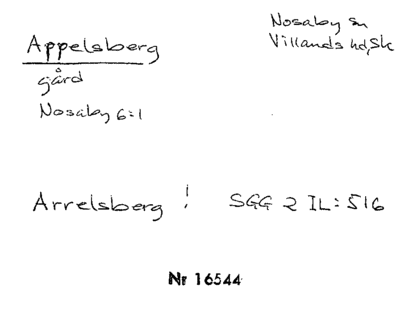 Appelsberg
gård
Nosaby 6:1
Nosaby sn
Villands hd, Sk
Arrelsberg ! SGG 2 IL: 516
Nr 16544